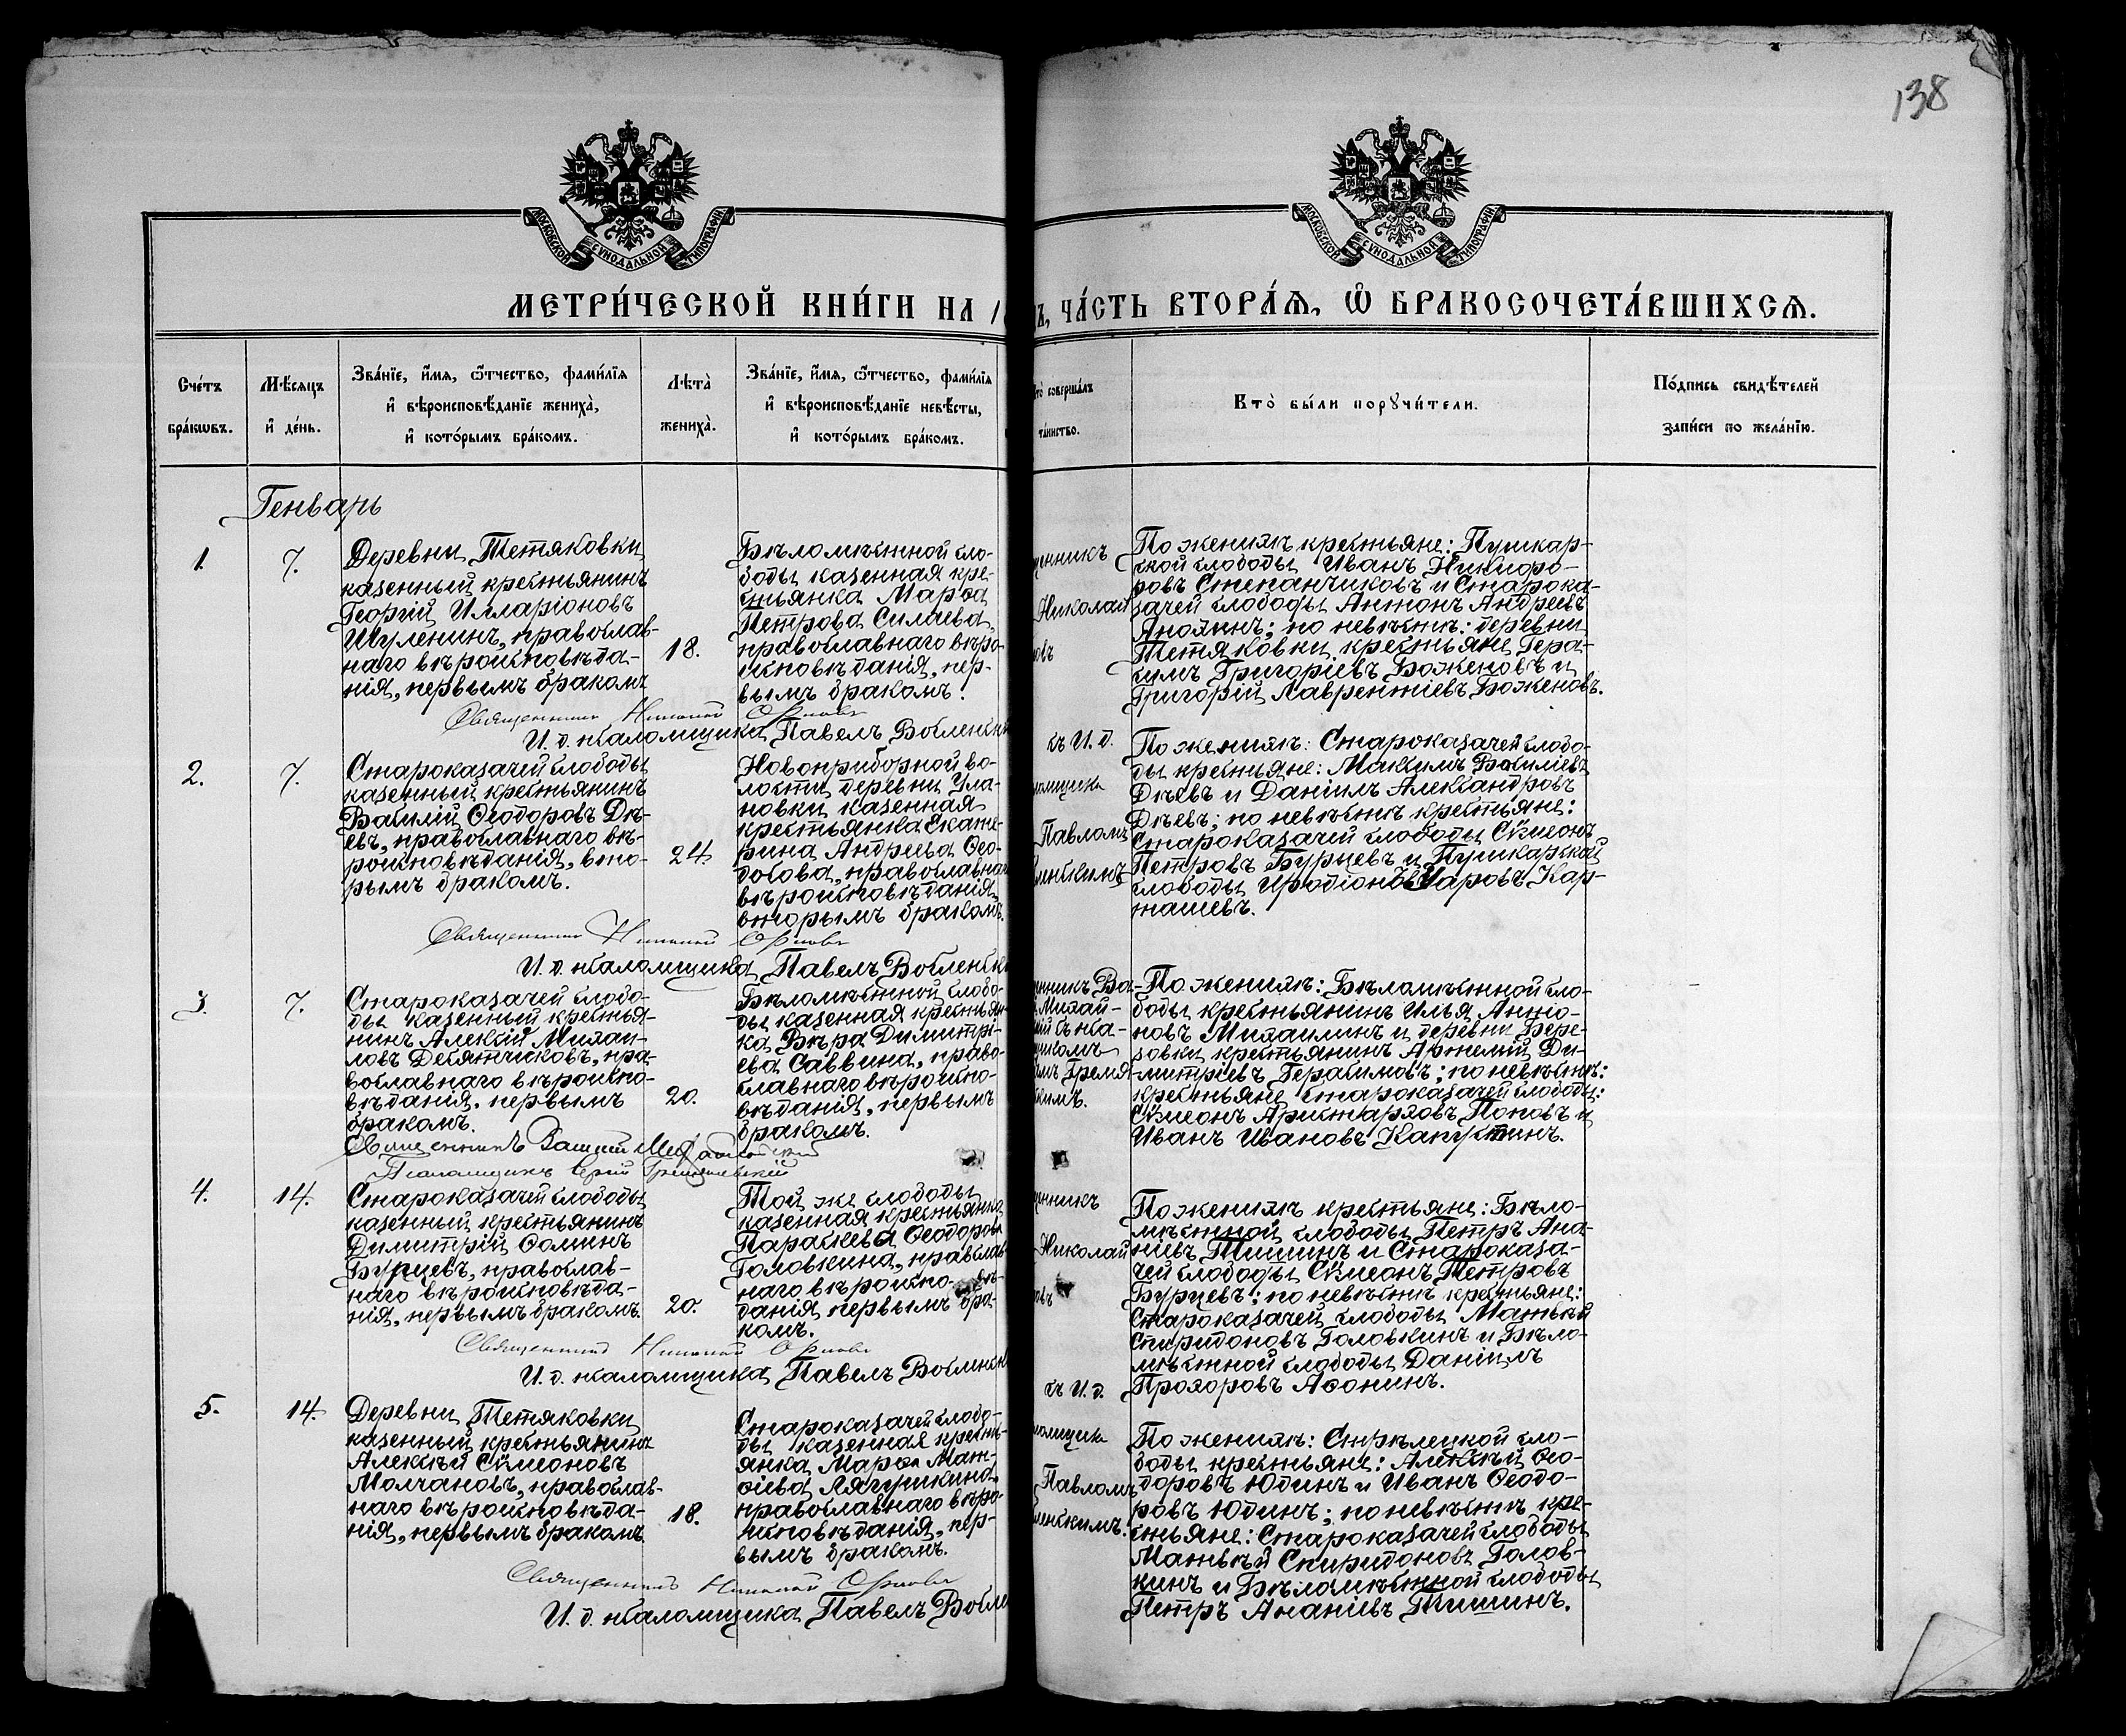 138
МОСКОВСКОЙ СѴНОДАЛЬНОЙ ТИПОГРАФІИ
МОСКОВСКОЙ СѴНОДАЛЬНОЙ ТИПОГРАФІИ
МЕТРИ́ЧЕСКОЙ КНИ́ГИ НА 1
Ъ, ЧА́СТЬ ВТОРА́Ѧ, Ѽ БРАКОСОЧЕТА́ВШИХСѦ.
Сче́тъ
бра́кѡвъ.
Мѣ́сяцъ
и҆ де́нь.
Зва́нїе, и҆́мѧ, ѻ҆́тчество, фами́лїѧ
и҆ вѣроисповѣ́данїе жениха̀,
и҆ кото́рымъ бра́комъ.
Лѣ́та̀
жениха̀.
Зва́нїе, и҆́мѧ, ѻ҆́тчество, фами́лїѧ
и҆ вѣроисповѣ́данїе невѣ́сты,
и҆ кото́рымъ бра́комъ.
то̀ соверша́лъ
та́инство.
Кто̀ бы́ли порꙋчи́тели.
По́дпись свидѣ́телей
за́писи по жела́нїю.
Генварь
1.
7.
Деревни Тетяковки
казенный крестьянинъ
Георгій Илларіоновъ
Шуленинъ, православ-
наго вѣроисповѣда-
нія, первымъ бракомъ
18.
Бѣломѣстной сло-
боды казенная кре-
стьянка Марѳа
Петрова Силаева,
православнаго вѣро-
исповѣданія, пер-
вымъ бракомъ.
щенникъ
Николай
овъ
По женихѣ крестьяне: Пушкар-
ской слободы Иванъ Никифо-
ровъ Степанчиковъ и Старока-
зачей слободы Антонъ Андреевъ
Анохинъ; по невѣстѣ: деревни
Тетяковки крестьяне Гера-
симъ Григоріевъ Боженовъ и
Григорій Лаврентіевъ Боженовъ.
Священникъ Николай Орловъ
И. д. псаломщика Павелъ Вобленски
2.
7.
Староказачей слободы
казенный крестьянинъ
Василій Ѳеодоровъ Дѣ-
евъ, православнаго вѣ-
роисповѣданія, вто-
рымъ бракомъ.
24.
Новоприборной во-
лости деревни Ула-
новки казенная
крестьянка Екате-
рина Андреева Ѳео-
досова, православнаго
вѣроисповѣданія,
вторымъ бракомъ.
съ И. д.
ломщика
Павломъ
ленскимъ
По женихѣ: Староказачей слобо-
ды крестьяне: Максимъ Василіевъ
Дѣевъ и Даніилъ Александровъ
Дѣевъ; по невѣстѣ крестьяне:
Староказачей слободы Сѵмеонъ
Петровъ Бурцевъ и Пушкарской
слободы Иродіонъ Уаровъ Кар-
ташевъ.
Священникъ Николай Орловъ
И. д. псаломщика Павелъ Вобленски
3.
7.
Староказачей слобо-
ды казенный крестья-
нинъ Алексій Михаи-
ловъ Десятчиковъ, пра-
вославнаго вѣроиспо-
вѣданія, первымъ
бракомъ.
20.
Бѣломѣстной слобо-
ды казенная крестьян-
ка Вѣра Димитрі-
ева Саввина, право-
славнаго вѣроиспо-
вѣданія, первымъ
бракомъ.
нникъ Ва-
Михай-
ій съ пса-
щикомъ
емъ Гремя-
скимъ.
По женихѣ: Бѣломѣстной сло-
боды крестьянинъ Илья Антіо-
новъ Михаилинъ и деревни Бере-
зовки крестьянинъ Артемій Ди-
митріевъ Герасимовъ; по невѣстѣ:
крестьяне староказачей слободы:
Сѵмеонъ Аристарховъ Поповъ и
Иванъ Ивановъ Капустинъ.
Священникъ Василій
Псаломщикъ
4.
14.
Староказачей слободы
казенный крестьянинъ
Димитрій Ѳоминъ
Бурцевъ, православ-
наго вѣроисповѣда-
нія, первымъ бракомъ.
20.
Той же слободы
казенная крестьянка
Параскева Ѳеодорова
Головкина, православ-
наго вѣроиспо-вѣ-
данія первымъ бра-
комъ.
щенникъ
Николай
овъ
По женихѣ крестьяне: Бѣло-
мѣстной слободы Петръ Ана-
ніевъ Тишинъ и Староказа-
чей слободы Сѵмеонъ Петровъ
Бурцевъ; по невѣстѣ крестьяне:
Староказачей слободы Матвѣй
Спиридоновъ Головкинъ и Бѣло-
мѣстной слободы Даніилъ
Прохоровъ Аѳонинъ.
Священникъ Николай Орловъ
И. д. псаломщика Павелъ Вобленски
5.
14.
Деревни Тетяковки
казенный крестьянинъ
Алексѣй Сѵмеоновъ
Молчановъ, православ-
наго вѣроисповѣда-
нія, первымъ бракомъ.
18.
Староказачей слобо-
ды казенная кресть-
янка Марѳа Мат-
ѳіева Лягушкина,
православнаго вѣро-
исповѣданія, пер-
вымъ бракомъ.
съ И. д.
ломщика
Павломъ
ленскимъ.
По женихѣ: Стрѣлецкой сло-
боды крестьяне: Алексѣй Ѳео-
доровъ Юдинъ и Иванъ Ѳеодо-
ровъ Юдинъ; по невѣстѣ кре-
стьяне: Староказачей слободы
Матвѣй Спиридоновъ Голов-
кинъ и Бѣломѣстной слободы
Петръ Ананіевъ Тишинъ.
Священникъ Николай Орловъ
И. д. псаломщика Павелъ Вобле